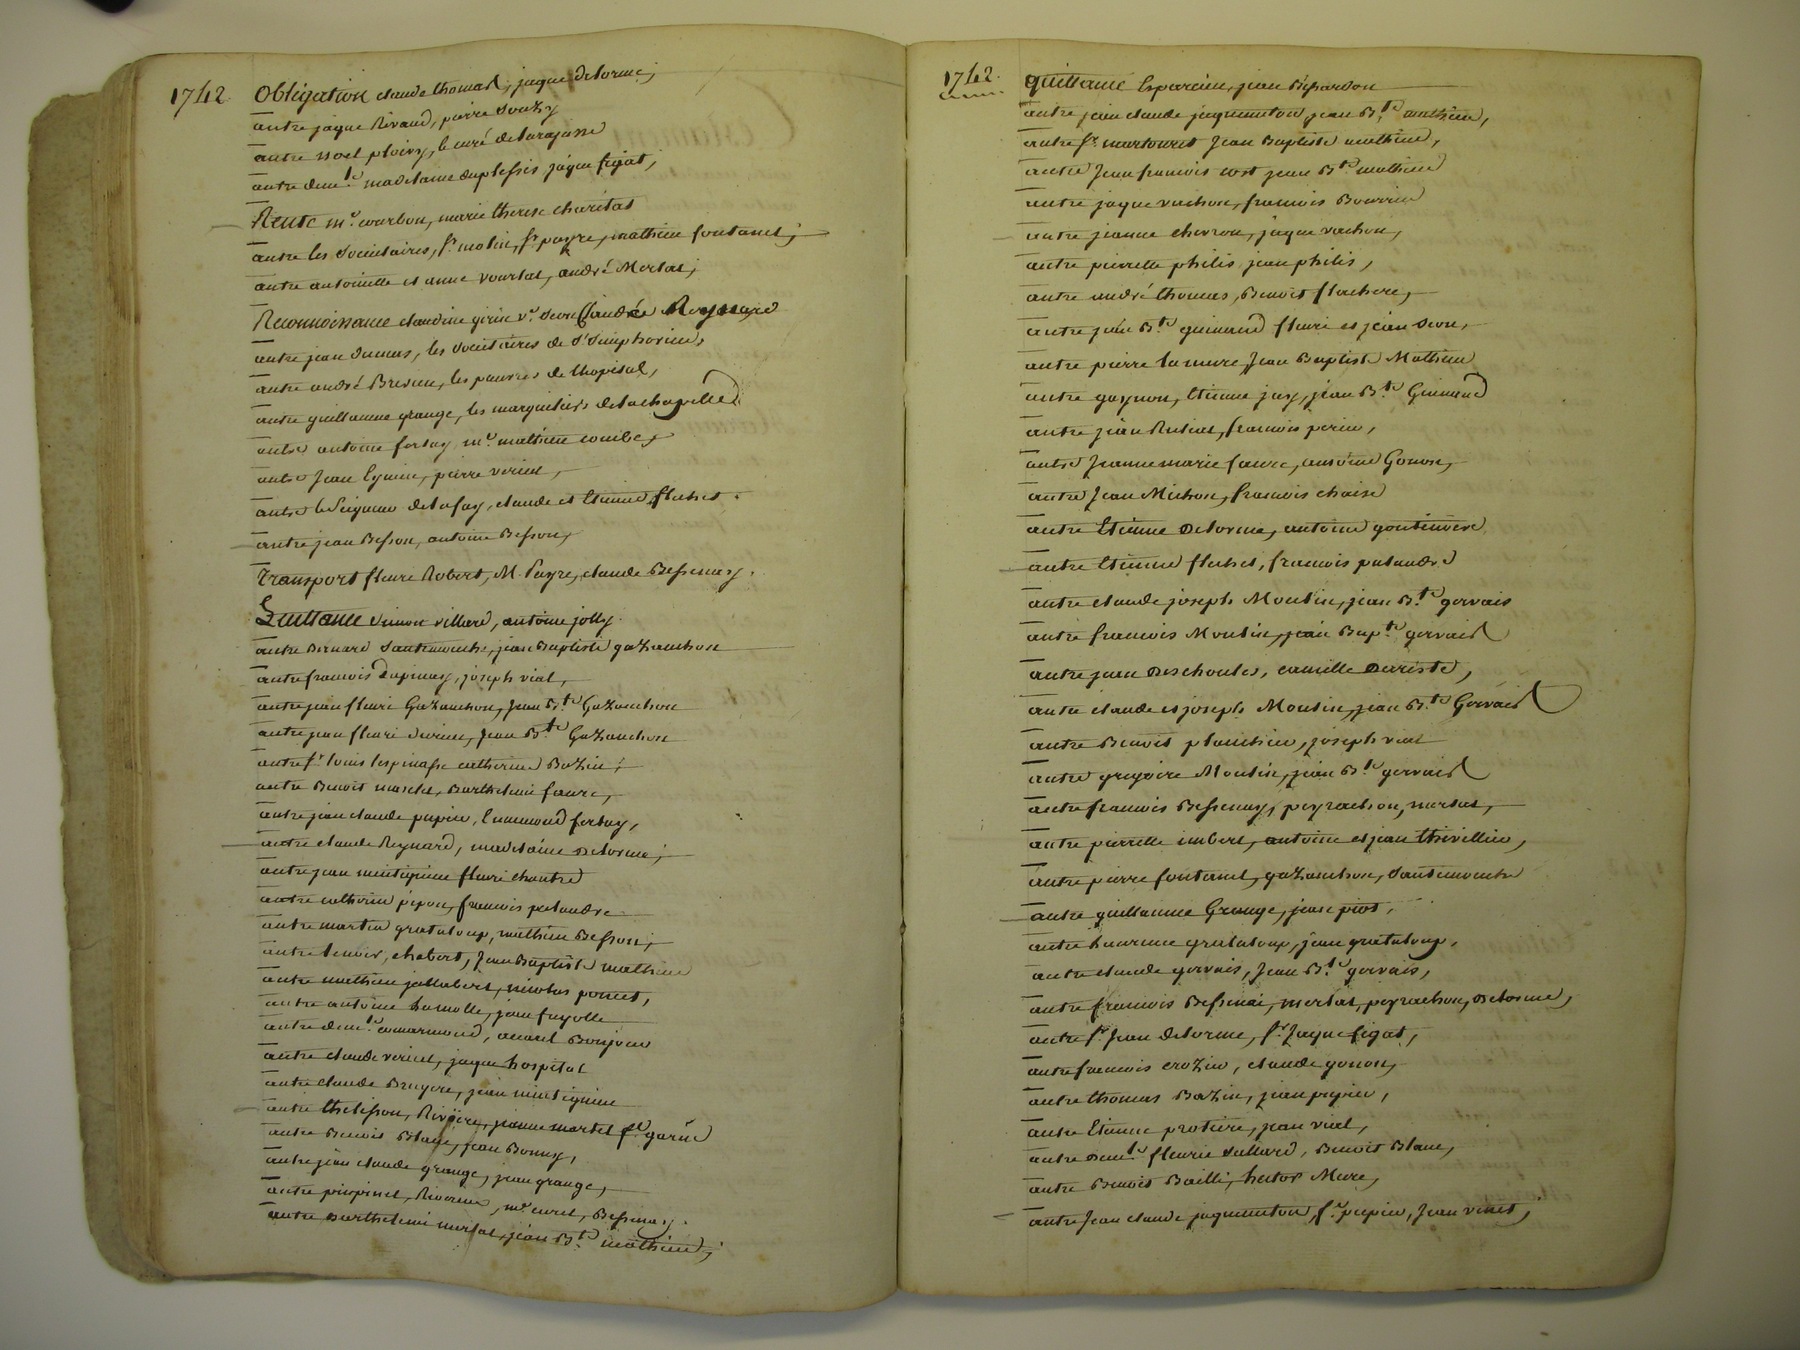 1742. Obligation claude thomas, jaque delorme;
autre jaque Rivaud, pierre Souzy
autre noel ploivy, le curé de larajasse
autre dem.lle madelaine duplessis jaque figat,
Rente m.e courbon, marie therese charitat
autre les societaires, s.r molin, s.r payre, mathieu fontanel;
autre antoinette et anne voursat, andré Mersat;
Reconnoissance claudine girin v.e andré Reynard
autre jean dumas, les societaires de S.t Simphorien,
autre andré Breson, les pauvres de lhopital,
autre guillaume grange, les marguiliers de lachapelle
autre antoine fortay m.e mathieu combe,
autre Jean Eymin, pierre vericel,
autre le Seigneur de lafay, claude et Etienne fluchet.
autre jean Besson, antoine Besson,
Transport fleurie Robert, M. Payre, claude Bessenay.
Quittance Simon villard, antoine jolly.
autre Bernard Santemouche, jean Baptiste gazanchon
autre francois Dupinay, joseph vial,
autre jean fleuri Gazanchon, Jean B.te Gazanchon
autre jean fleuri Jean B.te Gazanchon
autre s.r louis lespinasse catherine Bazin;
autre Benoit Barthelemi faure,
autre jean claude pupier, Ennemond fortay,
autre claude Reynard, madelaine Delorme;
autre jean fleuri chantre
autre catherine pipon, francois palandre
autre martin grataloup, mathieu Besson;
autre lenoir, chabert, Jean Baptiste mathieu
autre mathieu jallabert, nicolas poncet,
autre antoine hamelle, jean fayolle
autre dem.lle Bonjour
autre claude vericel, jaque hospital
autre claude Bruyere, jean
autre thelisson, Riviere, jeanne martel garin
autre Benoit Blanc, jean Bonnay,
autre jean claude grange, jean grange,
autre Riverieu, m.re curet, Bessenay.
autre Barthelemi mersat, jean B.te mathieu;
1742. quittance lesparcieu, jean Bissardon
autre jean claude jaquemeton, jean B.te mathieu,
autre s.r martouret Jean Baptiste mathieu,
autre Jean francois cost jean B.te mathieu
autre jaque vachon, francois Bouvier
autre jeanne chevron, jaque vachon,
autre pierrette philis, jean philis,
autre andré thomas, Benoit flachere,
autre jean B.te guinand fleuri et jean
autre pierre lamure, Jean Baptiste Mathieu
autre gaynon, Etienne jay, jean B.te Guinand
autre jean francois perin,
autre Jeanne marie faure, antoine Gonon,
autre Jean Michon, francois chaise
autre Etienne Delorme, antoine
autre Etienne fluchet, francois palandre
autre claude joseph Moulin, jean B.te gervais
autre francois Moulin, jean Bap.te gervais
autre jean Deschoules, camille
autre claude et joseph Moulin, jean B.te Gervais
autre Benoit planchin, joseph vial
autre gregoire Moulin, jean B.te gervais
autre francois Bessenay, peyrachon, mersat,
autre pierrette imbert, antoine et jean thivillier,
autre pierre fontanel, gazanchon, Santemouche
autre guillaume Grange, jean piot,
autre Laurence grataloup, jean grataloup,
autre claude gervais, Jean B.te gervais,
autre francois Bessenai, mersat, peyrachon, Delorme,
autre s.r Jean delorme, s.r Jaque figat,
autre francois crozier, claude gonon,
autre thomas Bazin, jean pupier,
autre Etienne protiere, jean viel,
autre dem.lle fleurie Benoit Blanc,
autre Benoit Bailli, hector Mure,
autre Jean claude jaquemeton, s.r pupier, Jean vinet,